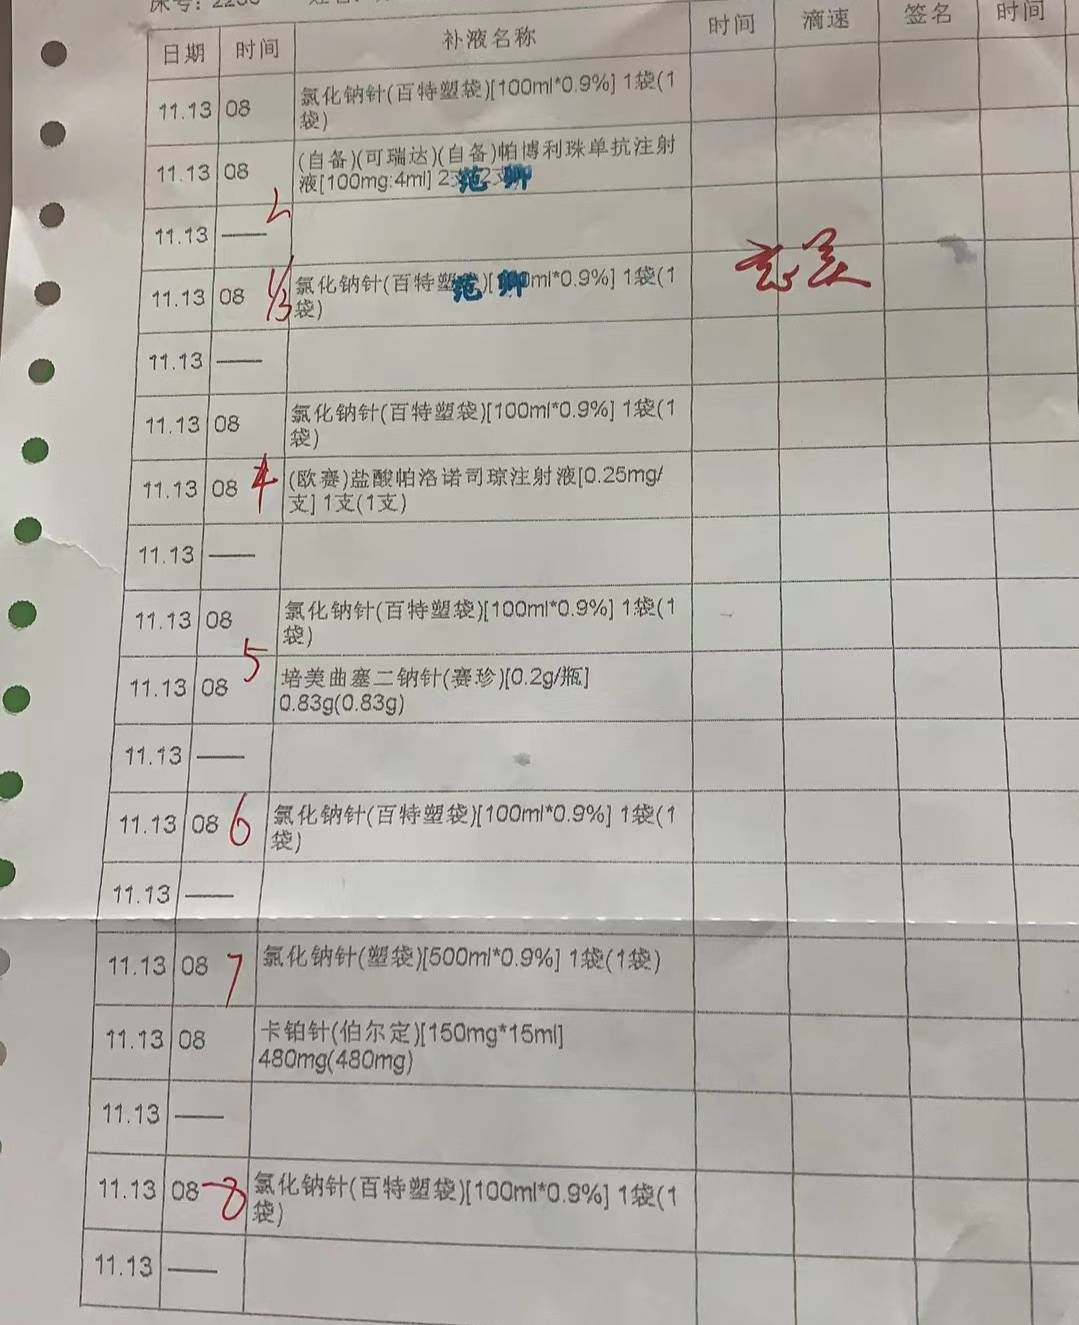 日期 时间 补液名称 时间 滴速 签名 时间
11.13 08 氯化钠针(百特塑袋)[100ml*0.9%] 1袋(1
袋)
11.13 08 (自备)(可瑞达)(自备)帕博利珠单抗注射
液[100mg:4ml] 2
11.13 ——
11.13 08 1/3 氯化钠针(百特塑 ml*0.9%] 1袋(1
袋)
11.13 ——
11.13 08 氯化钠针(百特塑袋)[100ml*0.9%] 1袋(1
袋)
11.13 08 4 (欧赛)盐酸帕洛诺司琼注射液[0.25mg/
支] 1支(1支)
11.13 ——
11.13 08 氯化钠针(百特塑袋)[100ml*0.9%] 1袋(1
袋)
5
11.13 08 培美曲塞二钠针(赛珍)[0.2g/瓶]
0.83g(0.83g)
11.13 ——
11.13 08 6 氯化钠针(百特塑袋)[100ml*0.9%] 1袋(1
袋)
11.13 ——
11.13 08 7 氯化钠针(塑袋)[500ml*0.9%] 1袋(1袋)
11.13 08 卡铂针(伯尔定)[150mg*15ml]
480mg(480mg)
11.13 ——
11.13 08 8 氯化钠针(百特塑袋)[100ml*0.9%] 1袋(1
袋)
11.13 ——